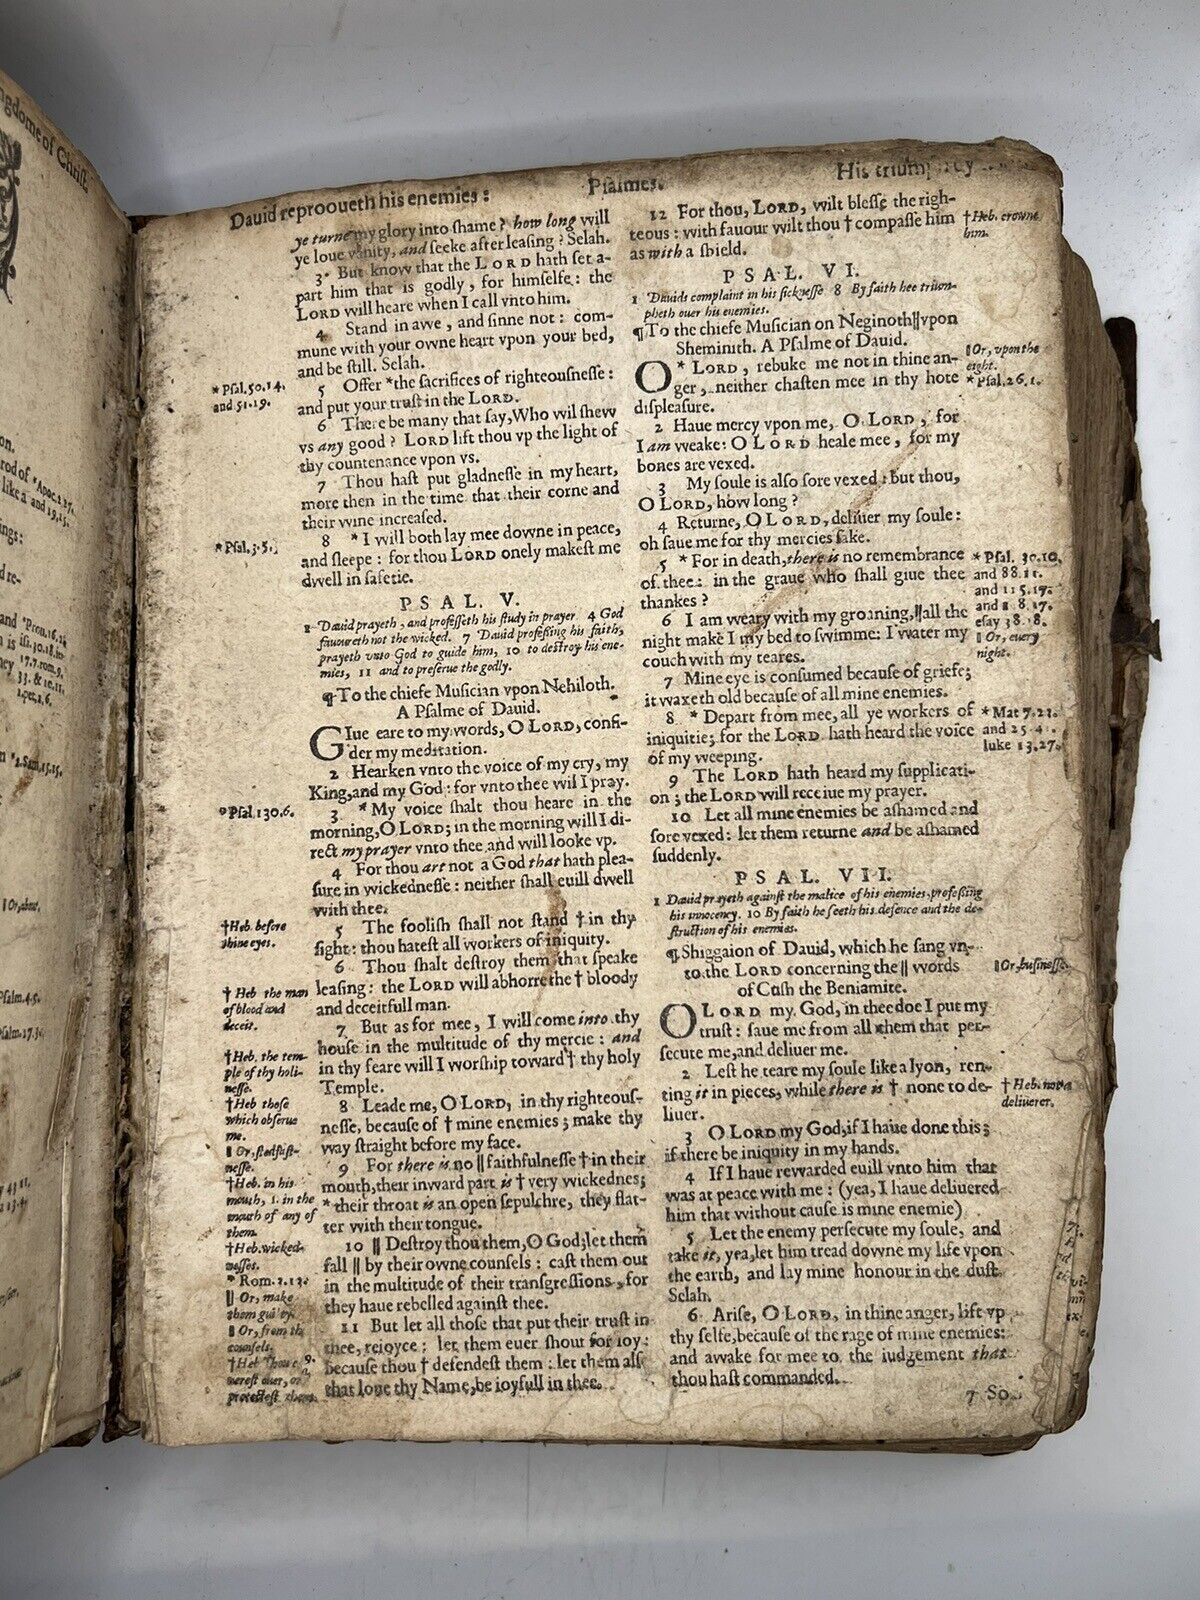 ngdome of Christ.
on.
rod of
like a
*Apoc. 2.27.
and 19.15.
ngs:
d re-
and
n is
ney
*Prou.16.
isa.30.18.
17.7. rom.9.
33. & 10.11.
1.pet.2.6.
*2.Sam.15.15.
‖ Or, about.
Psalm.4.5.
Dauid reprooueth his enemies:
Psalmes.
His trium
ye turne my glory into shame? how long will
ye loue vanity, and seeke after leasing? Selah.
3 But know that the LORD hath set a-
part him that is godly, for himselfe: the
LORD will heare when I call vnto him.
4 Stand in awe, and sinne not: com-
mune with your owne heart vpon your bed,
and be still. Selah.
5 Offer *the sacrifices of righteousnesse:
and put your trust in the LORD.
6 There be many that say, Who wil shew
vs any good? LORD lift thou vp the light of
thy countenance vpon vs.
7 Thou hast put gladnesse in my heart,
more then in the time that their corne and
their wine increased.
8 *I will both lay mee downe in peace,
and sleepe: for thou LORD onely makest me
dwell in safetie.
PSAL. V.
1 Dauid prayeth, and professeth his study in prayer 4 God
fauoureth not the wicked. 7 Dauid professing his faith,
prayeth vnto God to guide him, 10 to destroy his ene-
mies, 11 and to preserue the godly.
¶To the chiefe Musician vpon Nehiloth.
A Psalme of Dauid.
GIue eare to my words, O LORD, consi-
der my meditation.
2 Hearken vnto the voice of my cry, my
King, and my God: for vnto thee wil I pray.
3 *My voice shalt thou heare in the
morning, O LORD; in the morning will I di-
rect my prayer vnto thee and will looke vp.
4 For thou art not a God that hath plea-
sure in wickednesse: neither shall euill dwell
with thee.
5 The foolish shall not stand † in thy
sight: thou hatest all workers of iniquity.
6 Thou shalt destroy them that speake
leasing: the LORD will abhorre the † bloody
and deceitfull man.
7 But as for mee, I will come into thy
house in the multitude of thy mercie: and
in thy feare will I worship toward † thy holy
Temple.
8 Leade me, O LORD, in thy righteous-
nesse, because of † mine enemies; make thy
way straight before my face.
9 For there is no ‖ faithfulnesse † in their
mouth, their inward part is † very wickednes;
* their throat is an open sepulchre, they flat-
ter with their tongue.
10 ‖ Destroy thou them, O God; let them
fall ‖ by their owne counsels: cast them out
in the multitude of their transgressions, for
they haue rebelled against thee.
11 But let all those that put their trust in
thee, reioyce: let them euer shout for ioy:
because thou † defendest them: let them also
that loue thy Name, be ioyfull in thee.
* Psal. 50.14.
and 51.19.
* Psal. 3.5.
* Psal. 130.6.
† Heb. before
thine eyes.
† Heb. the man
of blood and
deceit.
† Heb. the tem-
ple of thy holi-
nesse.
† Heb. those
which obserue
me.
‖ Or, stedfast-
nesse.
† Heb. in his
mouth, i. in the
mouth of any of
them.
† Heb. wicked-
nesses.
* Rom. 3.13.
‖ Or, make
them guilty.
‖ Or, from their
counsels.
† Heb. Thou co-
uerest ouer, or
protectest them.
12 For thou, LORD, wilt blesse the righ-
teous: with fauour wilt thou † compasse him
as with a shield.
PSAL. VI.
1 Dauids complaint in his sicknesse 8 By faith hee trium-
pheth ouer his enemies.
¶To the chiefe Musician on Neginoth ‖ vpon
Sheminith. A Psalme of Dauid.
O * LORD, rebuke me not in thine an-
ger, neither chasten mee in thy hote
displeasure.
2 Haue mercy vpon me, O LORD, for
I am weake: O LORD heale mee, for my
bones are vexed.
3 My soule is also sore vexed: but thou,
O LORD, how long?
4 Returne, O LORD, deliuer my soule:
oh saue me for thy mercies sake.
5 * For in death, there is no remembrance
of thee: in the graue who shall giue thee
thankes?
6 I am weary with my groaning, ‖ all the
night make I my bed to swimme: I water my
couch with my teares.
7 Mine eye is consumed because of griefe;
it waxeth old because of all mine enemies.
8 * Depart from mee, all ye workers of
iniquitie; for the LORD hath heard the voice
of my weeping.
9 The LORD hath heard my supplicati-
on; the LORD will receiue my prayer.
10 Let all mine enemies be ashamed and
sore vexed: let them returne and be ashamed
suddenly.
PSAL. VII.
1 Dauid prayeth against the malice of his enemies, professing
his innocency. 10 By faith he seeth his defence and the de-
struction of his enemies.
¶Shiggaion of Dauid, which he sang vn-
to the LORD concerning the ‖ words
of Cush the Beniamite.
O LORD my God, in thee doe I put my
trust: saue me from all them that per-
secute me, and deliuer me.
2 Lest he teare my soule like a lyon, ren-
ting it in pieces, while there is † none to de-
liuer.
3 O LORD my God, if I haue done this;
if there be iniquity in my hands.
4 If I haue rewarded euill vnto him that
was at peace with me: (yea, I haue deliuered
him that without cause is mine enemie)
5 Let the enemy persecute my soule, and
take it, yea, let him tread downe my life vpon
the earth, and lay mine honour in the dust.
Selah.
6 Arise, O LORD, in thine anger, lift vp
thy selfe, because of the rage of mine enemies:
and awake for mee to the iudgement that
thou hast commanded.
7 So
† Heb. crowne
him.
‖ Or, vpon the
eight.
* Psal. 26.1.
* Psal. 30.10.
and 88.11.
and 115.17.
and 118.17.
esay 38.18.
‖ Or, euery
night.
* Mat 7.23.
and 25.41.
luke 13.27.
‖ Or, businesse.
† Heb. not a
deliuerer.